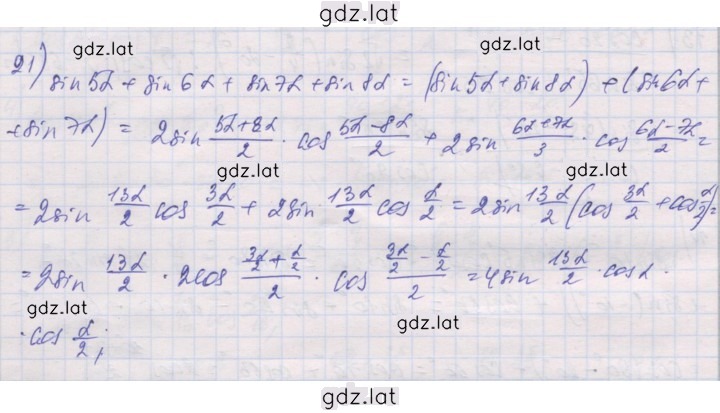 gdz.lat
gdz.lat gdz.lat
21) sin 5α + sin 6α + sin 7α + sin 8α = (sin 5α + sin 8α) + (sin 6α +
+ sin 7α) = 2 sin (5α+8α)/2 · cos (5α-8α)/2 + 2 sin (6α+7α)/3 · cos (6α-7α)/2 =
gdz.lat gdz.lat
= 2 sin 13α/2 cos 3α/2 + 2 sin 13α/2 cos α/2 = 2 sin 13α/2 (cos 3α/2 + cos α/2) =
= 2 sin 13α/2 · 2 cos (3α/2 + α/2)/2 · cos (3α/2 - α/2)/2 = 4 sin 13α/2 · cos α ·
gdz.lat gdz.lat
· cos α/2;
gdz.lat